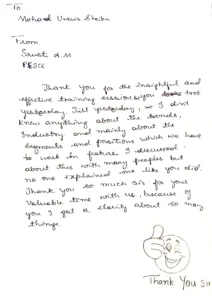 To
Mohard Uvais Sheikh
From
Sruti A.M
PESCE
Thank you for the insightful and
effective training session you took
yesterday. Till yesterday, I didn't
know anything about the trends,
Industry and mainly about the
segments and positions which we have
to work in feature I discussed
about this with many peoples but
no one explained me like you did.
Thank you so much sir for your
Valuable time with us, because of
you I got a clarity about so many
things.
Thank You Sir